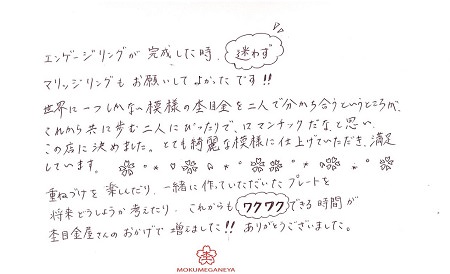 エンゲージリングが完成した時、迷わず
マリッジリングもお願いしてよかったです!!
世界に一つしかない模様の杢目金を二人で分から合うというところが、
これから共に歩む二人にぴったりで、ロマンチックだな、と思い、
この店に決めました。とても綺麗な模様に仕上げていただき、満足
しています。
重ねづけを楽しんだり、一緒に作っていただいたプレートを
将来どうしようか考えたり、これからもワクワクできる時間が
杢目金屋さんのおかげで増えました!! ありがとうございました。
MOKUMEGANEYA